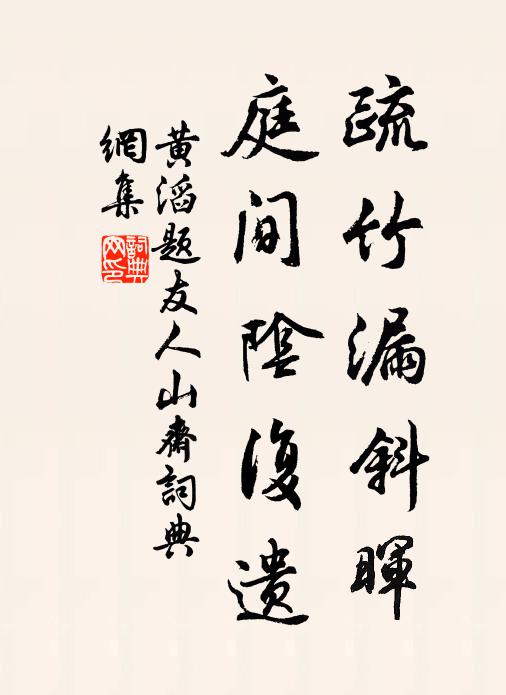 疏竹漏斜暉
庭間陰復遺
黃滔題友人山齋詞典
網集
詞典
网印